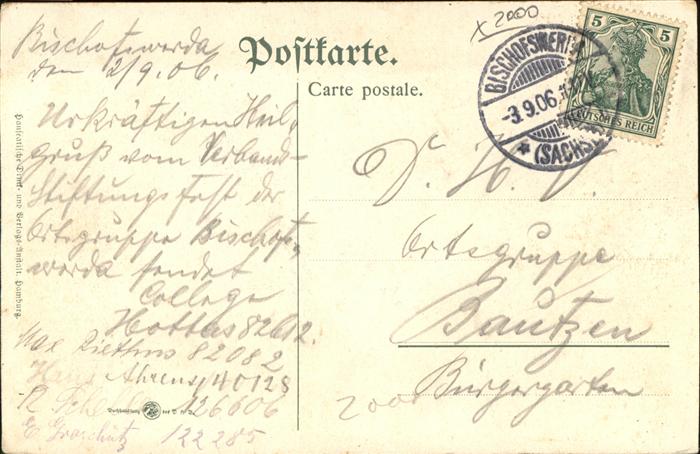 x 2000
Postkarte.
Carte postale.
5 5
DEUTSCHES REICH
BISCHOFSWERDA
-3.9.06.
* (SACHSEN)
Bischofswerda
den 2/9.06.
Urkräftigen Heil-
gruß vom Verbands-
Stiftungsfest der
Ortsgruppe Bischofs-
werda sendet
College
Hottas 82612.
Max Diethms 82082
Hans Ahrens 40128
R. 126606
E. 122285
D. H. V.
Ortsgruppe
Bautzen
Bürgergarten
2000
Hanseatische Druck- und Verlags-Anstalt. Hamburg.
Buchhandlung des D.H.V.